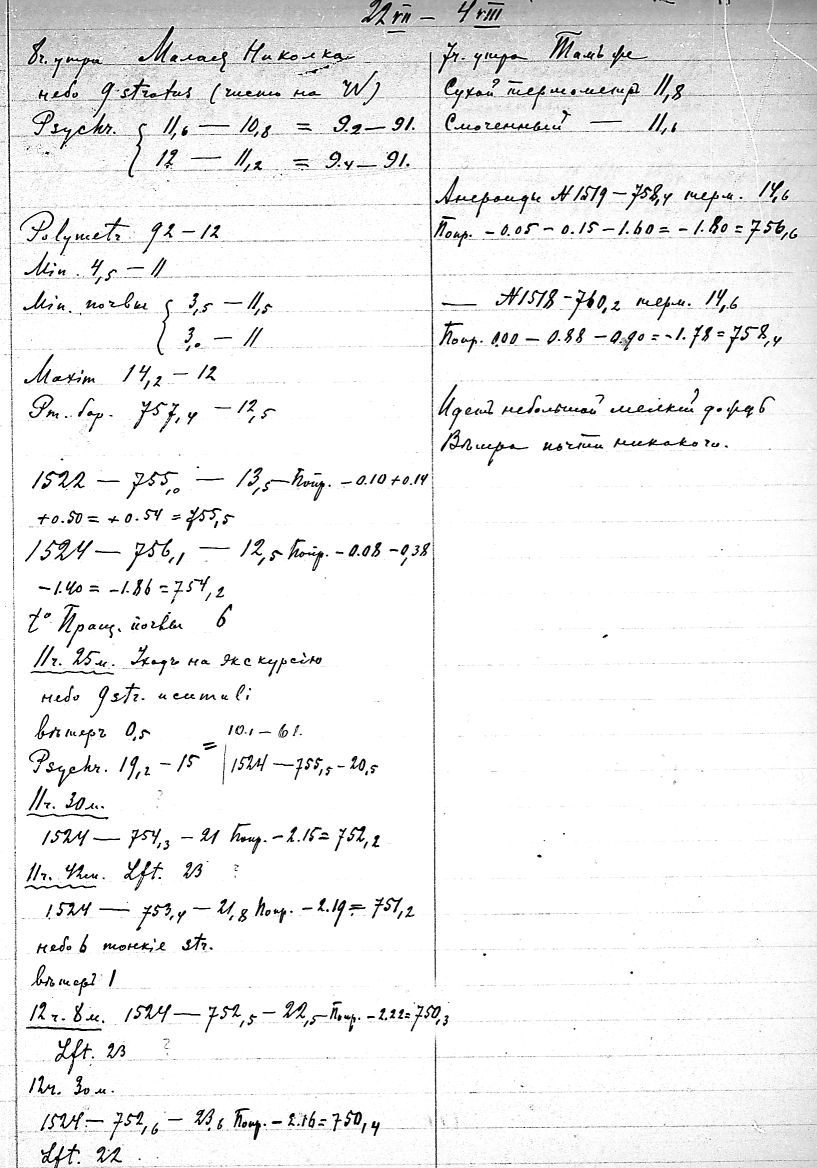 22 VII — 4 VIII
8 ч. утра Малая Николка
небо 9 stratus (чисто на W)
Psychr. { 11,6 — 10,8 = 9.2 — 91.
12 — 11,2 = 9.4 — 91.
Polymetr 92 — 12
Min. 4,5 — 11
Min. почвы { 3,5 — 11,5
3,0 — 11
Maxim 14,2 — 12
Рт. бар. 757,4 — 12,5
1522 — 755,0 — 13,5 Попр. — 0.10 + 0.14
+ 0.50 = + 0.54 = 755,5
1524 — 756,1 — 12,5 Попр. — 0.08 — 0,38
— 1.40 = — 1.86 = 754,2
t° Пращ. почвы 6
11 ч. 25 м. на экскурсію
небо 9 str. и cumuli
вѣтеръ 0,5
Psychr. 19,2 — 15 = 10.1 — 61.
1524 — 755,5 — 20,5
11 ч. 30 м. ?
1524 — 754,3 — 21 Попр. — 2.15 = 752,2
11 ч. 42 м. Lft. 23 ?
1524 — 753,4 — 21,8 Попр. — 2.19 = 751,2
небо 6 тонкіе str.
вѣтеръ 1
12 ч. 8 м. 1524 — 752,5 — 22,5 Попр. — 2.22 = 750,3
Lft. 23 ?
12 ч. 30 м.
1524 — 752,6 — 23,6 Попр. — 2.16 = 750,4
Lft. 22
7 ч. утра Тамъ же
Сухой термометръ 11,8
Смоченный — 11,6
Анероиды № 1519 — 758,4 терм. 14,6
Попр. — 0.05 — 0.15 — 1.60 = — 1.80 = 756,6
— № 1518 — 760,2 терм. 14,6
Попр. 0.00 — 0.88 — 0.90 = — 1.78 = 758,4
Идетъ небольшой мелкій дождь
Вѣтра почти никакого.